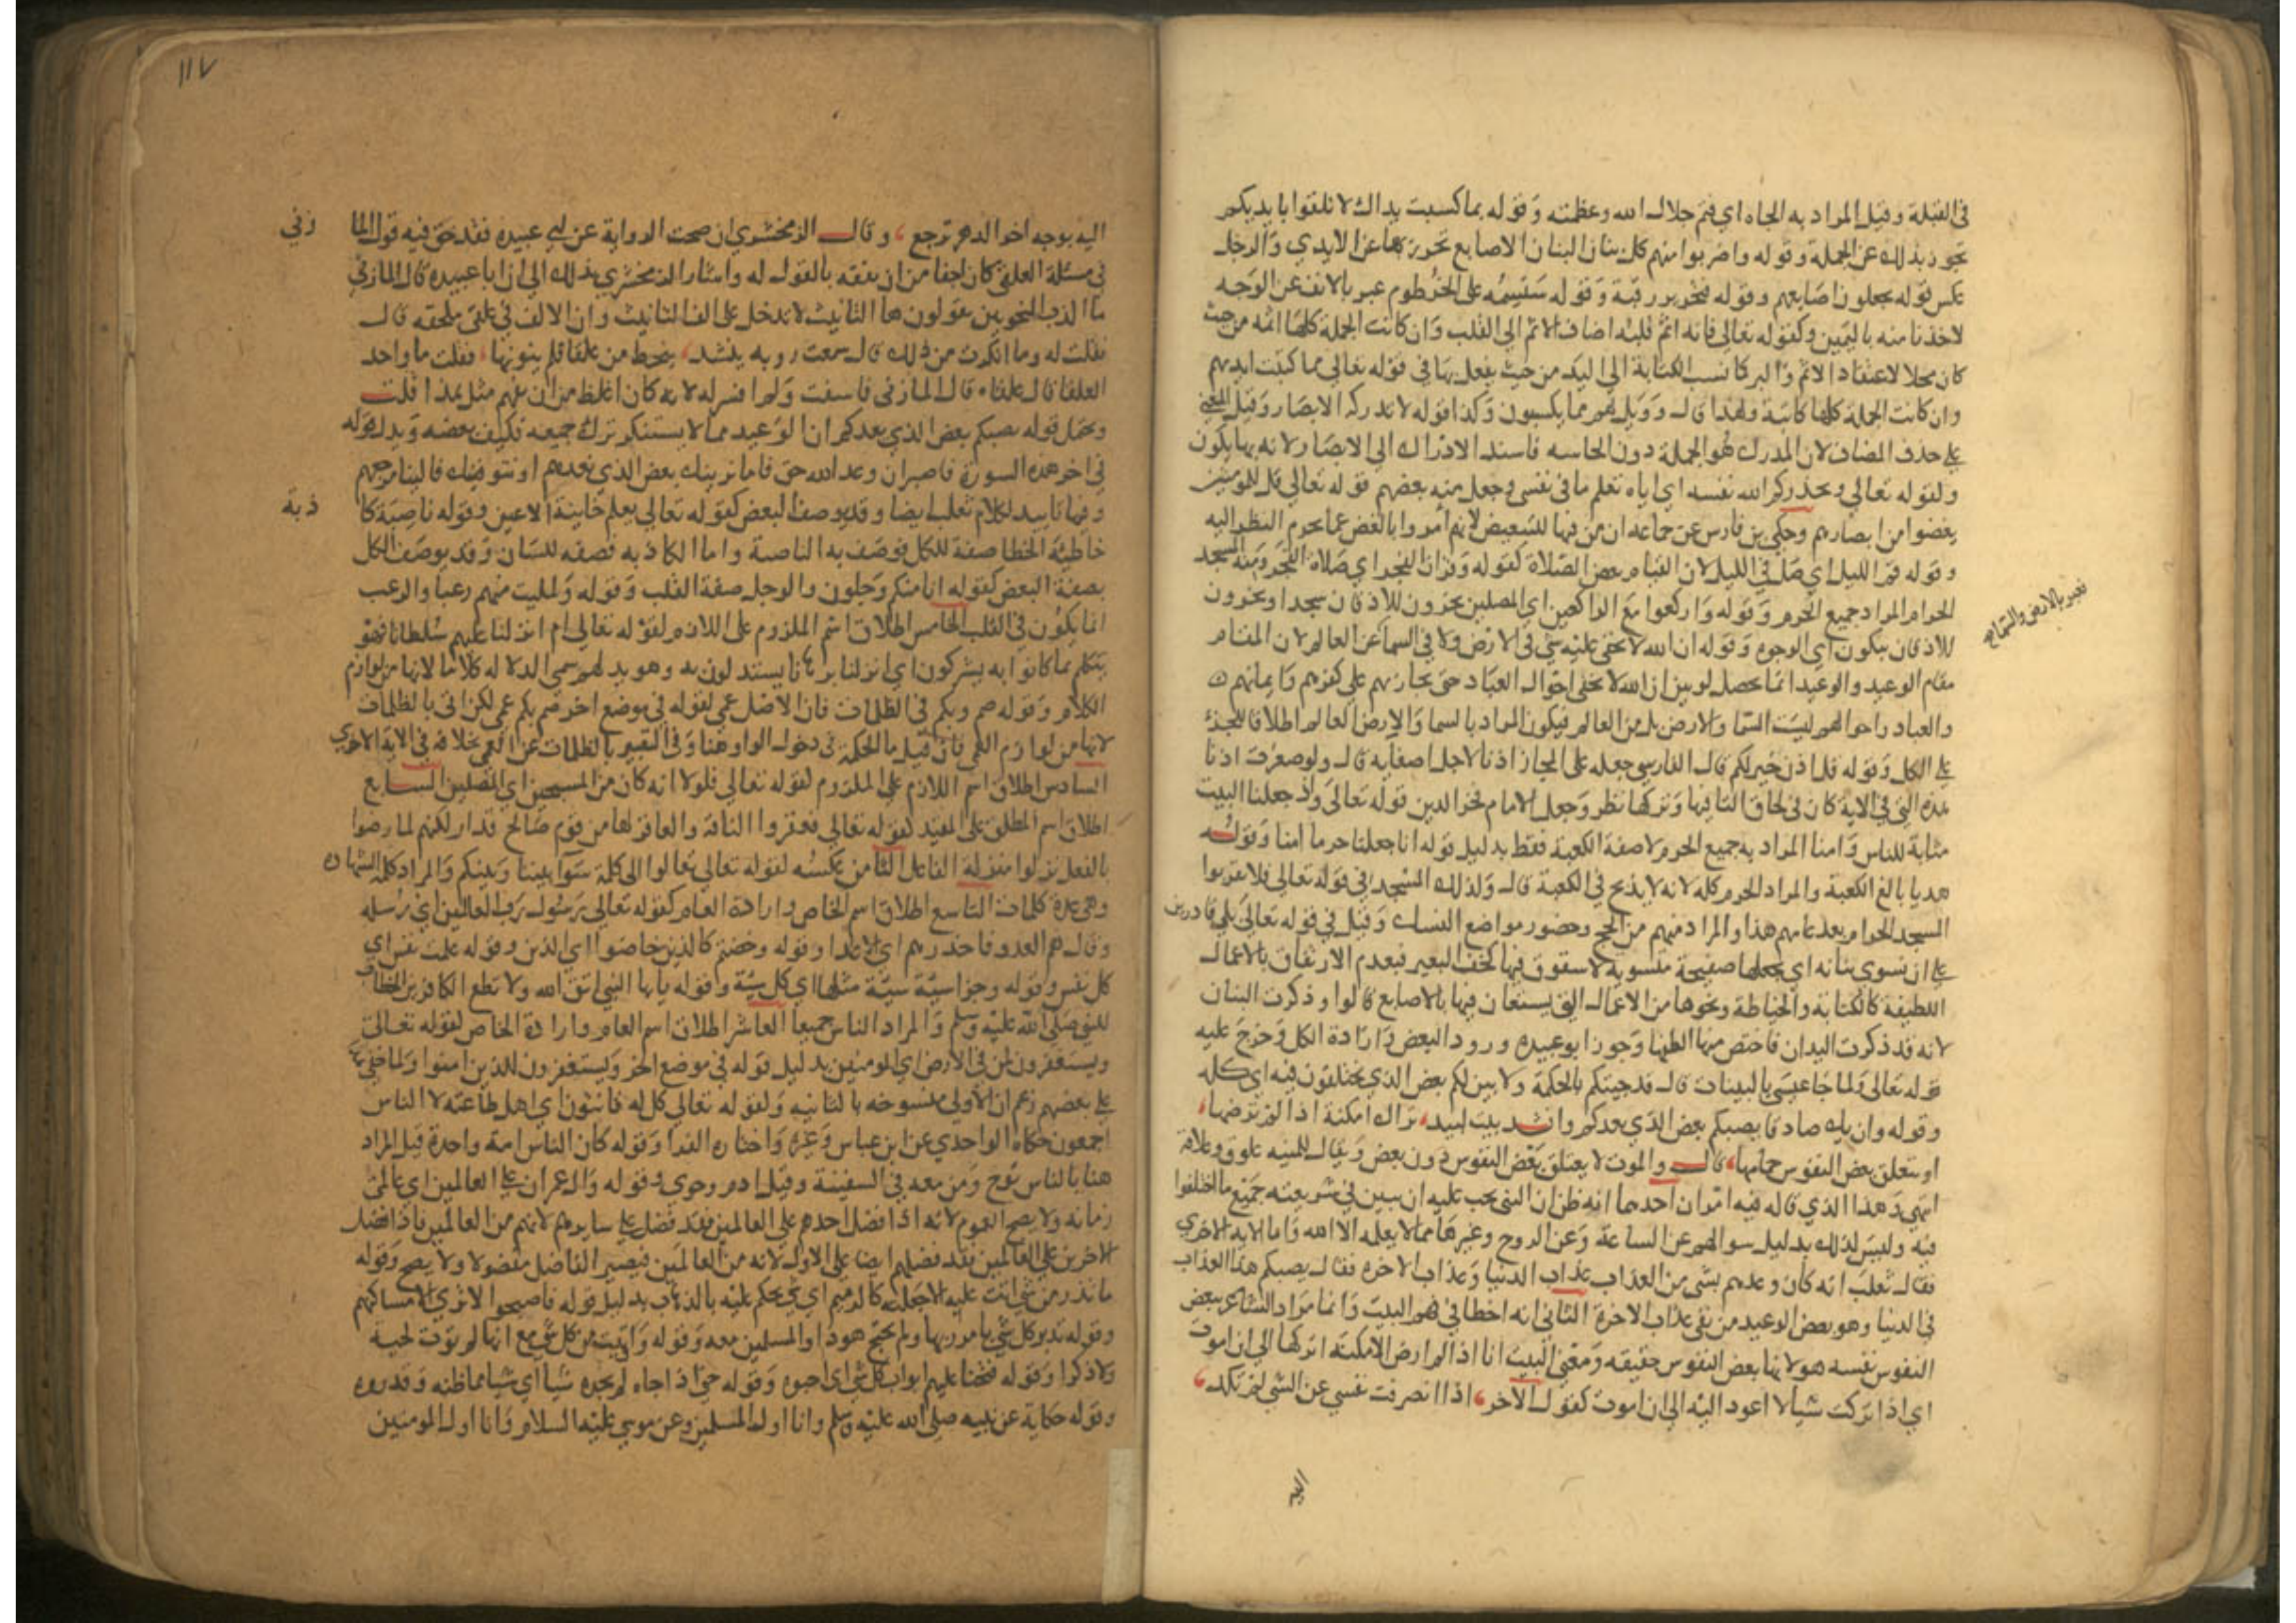 في القبلة وقيل المراد به الجاه اي فثم جلال الله وعظمته وقوله بما كسبت يداك لا تلقوا بايديكم
تجوز بذلك عن الجملة وقوله واضربوا منهم كل بنان البنان الاصابع تجوز بها عن الايدي والارجل
عكس قوله يجعلون اصابعهم وقوله فتحرير رقبة وقوله سنسمه على الخرطوم عبر بالانف عن الوجه
لاخذنا منه باليمين وكقوله تعالى فانه اثم قلبه اضاف الاثم الى القلب وان كانت الجملة كلها اثمه من حيث
كان محلا لاعتقاد الاثم والبر كما نسب الكتابة الى اليد من حيث يفعل بها في قوله تعالى مما كتبت ايديهم
وان كانت الجملة كلها كاتبة ولهذا قال وويل لهم مما يكسبون وكذا قوله لا تدركه الابصار وقيل المعني
على حذف المضاف لان المدرك هو الجملة دون الحاسه فاسند الادراك الى الابصار لانه بها يكون
ولقوله تعالى ويحذركم الله نفسه اي اياه تعلم ما في نفسي وجعل منه بعضهم قوله تعالى قل للمومنين
يغضوا من ابصارهم وحكى بن فارس عن جماعه ان من فيها للتبعيض لانهم امروا بالغض عما يحرم النظر اليه
وقوله قم الليل اي صل في الليل لان القيام بعض الصلاة كقوله وقران الفجر اي صلاة الفجر ومنه المسجد
الحرام المراد جميع الحرم وقوله واركعوا مع الراكعين اي المصلين يخرون للاذقان سجدا ويخرون
للاذقان يبكون اي الوجوه وقوله ان الله لا يخفى عليه شي في الارض ولا في السما عن العالم لان المقام
تعبير بالارض والسما
مقام الوعيد والوعيد انما يحصل لو بين ان الله لا يخفى احوال العباد حتى يجازيهم على كفرهم وايمانهم
والعباد واحوالهم ليست السما والارض بل من العالم فيكون المراد بالسما والارض العالم اطلاقا للجزء
على الكل وقوله قل اذن خير لكم قال الفارسي جعله على المجاز اذنا لاجل اصغايه قال ولو صغرت اذنا
هذه التي في الاية كان في لحاق التا فيها وتركها نظر وجعل الامام فخر الدين قوله تعالى واذ جعلنا البيت
مثابة للناس وامنا المراد به جميع الحرم لا صفة الكعبة فقط بدليل قوله انا جعلنا حرما امنا وقوله
هديا بالغ الكعبة والمراد الحرم كله لانه لا يذبح في الكعبة قال وكذلك المسجد في قوله تعالى فلا يقربوا
المسجد الحرام بعد عامهم هذا والمراد منهم من الحج وحضور مواضع النسك وقيل في قوله تعالى بلى قادرين
على ان نسوي بنانه اي نجعلها صفيحة مستوية لا شقوق فيها كخف البعير فيعدم الارتفاق بالاعمال
اللطيفة كالكتابة والخياطة ونحوها من الاعمال التي يستعان فيها بالاصابع قالوا وذكرت البنان
لانه قد ذكرت اليدان فاختص منها الطفها وجوز ابو عبيده ورود البعض وارادة الكل وخرج عليه
قوله تعالى ولما جا عيسى بالبينات قال قد جيتكم بالحكمة ولابين لكم بعض الذي تختلفون فيه اي كله
وقوله وان يك صادقا يصبكم بعض الذي يعدكم وانشد بيت لبيد، تراك امكنة اذا لم ترضها،
او يتعلق بعض النفوس حمامها، قال والموت لا يعتلق بعض النفوس دون بعض ويقال للمنيه علوق وعلاقة
انتهى وهذا الذي قاله فيه امران احدهما انه ظن ان النبي يجب عليه ان يبين في شريعته جميع ما اختلفوا
فيه وليس كذلك بدليل سوالهم عن الساعة وعن الروح وغيرها مما لا يعلمه الا الله واما الاية الاخرى
فقال ثعلب انه كان وعدهم بشي من العذاب عذاب الدنيا وعذاب الاخره فقال يصبكم هذا العذاب
في الدنيا وهو بعض الوعيد من نفي عذاب الاخرة الثاني انه اخطا في فهم البيت وانما مراد الشاعر ببعض
النفوس نفسه هو لانها بعض النفوس حقيقه ومعنى البيت انا اذا لم ارض الامكنة اتركها الى ان اموت
اي اذا تركت شيا لا اعود اليه الى ان اموت كقول الاخر، اذا انصرفت نفسي عن الشي لم تكد،
اليه
١١٧
اليه بوجه اخر الدهر ترجع، وقال الزمخشري ان صحت الرواية عن ابي عبيده فقد حق فيه قول الما
زني
في مسئلة العلقى كان اجفا من ان يفقه ما اقول له واشار الزمخشري بذلك الى ان ابا عبيده قال للمازني
ما اكذب النحويين يقولون ها التانيث لا تدخل على الف التانيث وان الالف في علقى ملحقه قال
فقلت له وما انكرت من ذلك قال سمعت روبه ينشد، يحط من علقا فلم ينونها، فقلت ما واحد
العلقا قال علقاه قال المازني فاسفت ولم افسر له لانه كان اغلظ من ان يفهم مثل هذا قلت
ويحتمل قوله يصبكم بعض الذي يعدكم ان الوعيد مما لا يستنكر ترك جميعه فكيف بعضه ويدل قوله
في اخر هذه السورة فاصبر ان وعد الله حق فاما نرينك بعض الذي نعدهم او نتوفينك فالينا مرجعهم
وفيها تاييد لكلام ثعلب ايضا وقد يوصف البعض كقوله تعالى يعلم خاينة الاعين وقوله ناصية كا
ذبة
خاطئة الخطا صفة للكل فوصف به الناصية واما الكاذبه فصفه للسان وقد يوصف الكل
بصفة البعض كقوله انا منكم وجلون والوجل صفة القلب وقوله ولمليت منهم رعبا والرعب
انما يكون في القلب الخامس اطلاق اسم الملزوم على اللازم لقوله تعالى ام انزلنا عليهم سلطانا فهو
يتكلم بما كانوا به يشركون اي انزلنا برهانا يستدلون به وهو يدلهم سمى الدلاله كلاما لانها من لوازم
الكلام وقوله صم وبكم في الظلمات فان الاصل عمي لقوله في موضع اخر صم بكم عمي لكن اتى بالظلمات
لانها من لوازم العمي فان قيل ما الحكمة في دخول الواو هنا وفي التعبير بالظلمات عن العمي بخلافه في الاية الاخرى
السادس اطلاق اسم اللازم على الملزوم لقوله تعالى فلولا انه كان من المسبحين اي المصلين السابع
اطلاق اسم المطلق على المقيد كقوله تعالى فعقروا الناقة والعاقر لها من قوم صالح قدار لكنهم لما رضوا
بالفعل نزلوا منزلة الفاعل الثامن عكسه لقوله تعالى تعالوا الى كلمة سوا بيننا وبينكم والمراد كلمة الشهادة
وهي عدة كلمات التاسع اطلاق اسم الخاص وارادة العام كقوله تعالى رسول رب العالمين اي رسله
وقال هم العدو فاحذرهم اي الاعدا وقوله وخضتم كالذي خاضوا اي الذين وقوله علمت نفس اي
كل نفس وقوله وجزا سيئة سيئة مثلها اي كل سيئة وقوله يايها النبي اتق الله ولا تطع الكافرين الخطاب
للنبي صلى الله عليه وسلم والمراد الناس جميعا العاشر اطلاق اسم العام وارادة الخاص لقوله تعالى
ويستغفرون لمن في الارض اي المومنين بدليل قوله في موضع اخر ويستغفرون للذين امنوا ولما خفي هذا
على بعضهم زعم ان الاولى منسوخه بالثانيه ولقوله تعالى كل له قانتون اي اهل طاعته لا الناس
اجمعون حكاه الواحدي عن ابن عباس وغيره واختاره الفرا وقوله كان الناس امة واحدة قيل المراد
هنا بالناس نوح ومن معه في السفينة وقيل ادم وحوى وقوله وال عمران على العالمين اي عالمي
زمانه ولا يصح العموم لانه اذا فضل احدهم على العالمين فقد فضل على سايرهم لانهم من العالمين فاذا فضل
الاخرين على العالمين فقد فضلهم ايضا على الاول لانه من العالمين فيصير الفاضل مفضولا ولا يصح وقوله
ما تذر من شي اتت عليه الا جعلته كالرميم اي شي يحكم عليه بالذهاب بدليل قوله فاصبحوا لا ترى الا مساكنهم
وقوله تدمر كل شي بامر ربها ولم تجتح هودا والمسلمين معه وقوله واوتيت من كل شي مع انها لم توت لحية
ولا ذكرا وقوله فتحنا عليهم ابواب كل شي اي احبوه وقوله حتى اذا جاه لم يجده شيا اي شيا مما ظنه وقدروه
وقوله حكاية عن نبيه صلى الله عليه وسلم وانا اول المسلمين وعن موسى عليه السلام وانا اول المومنين